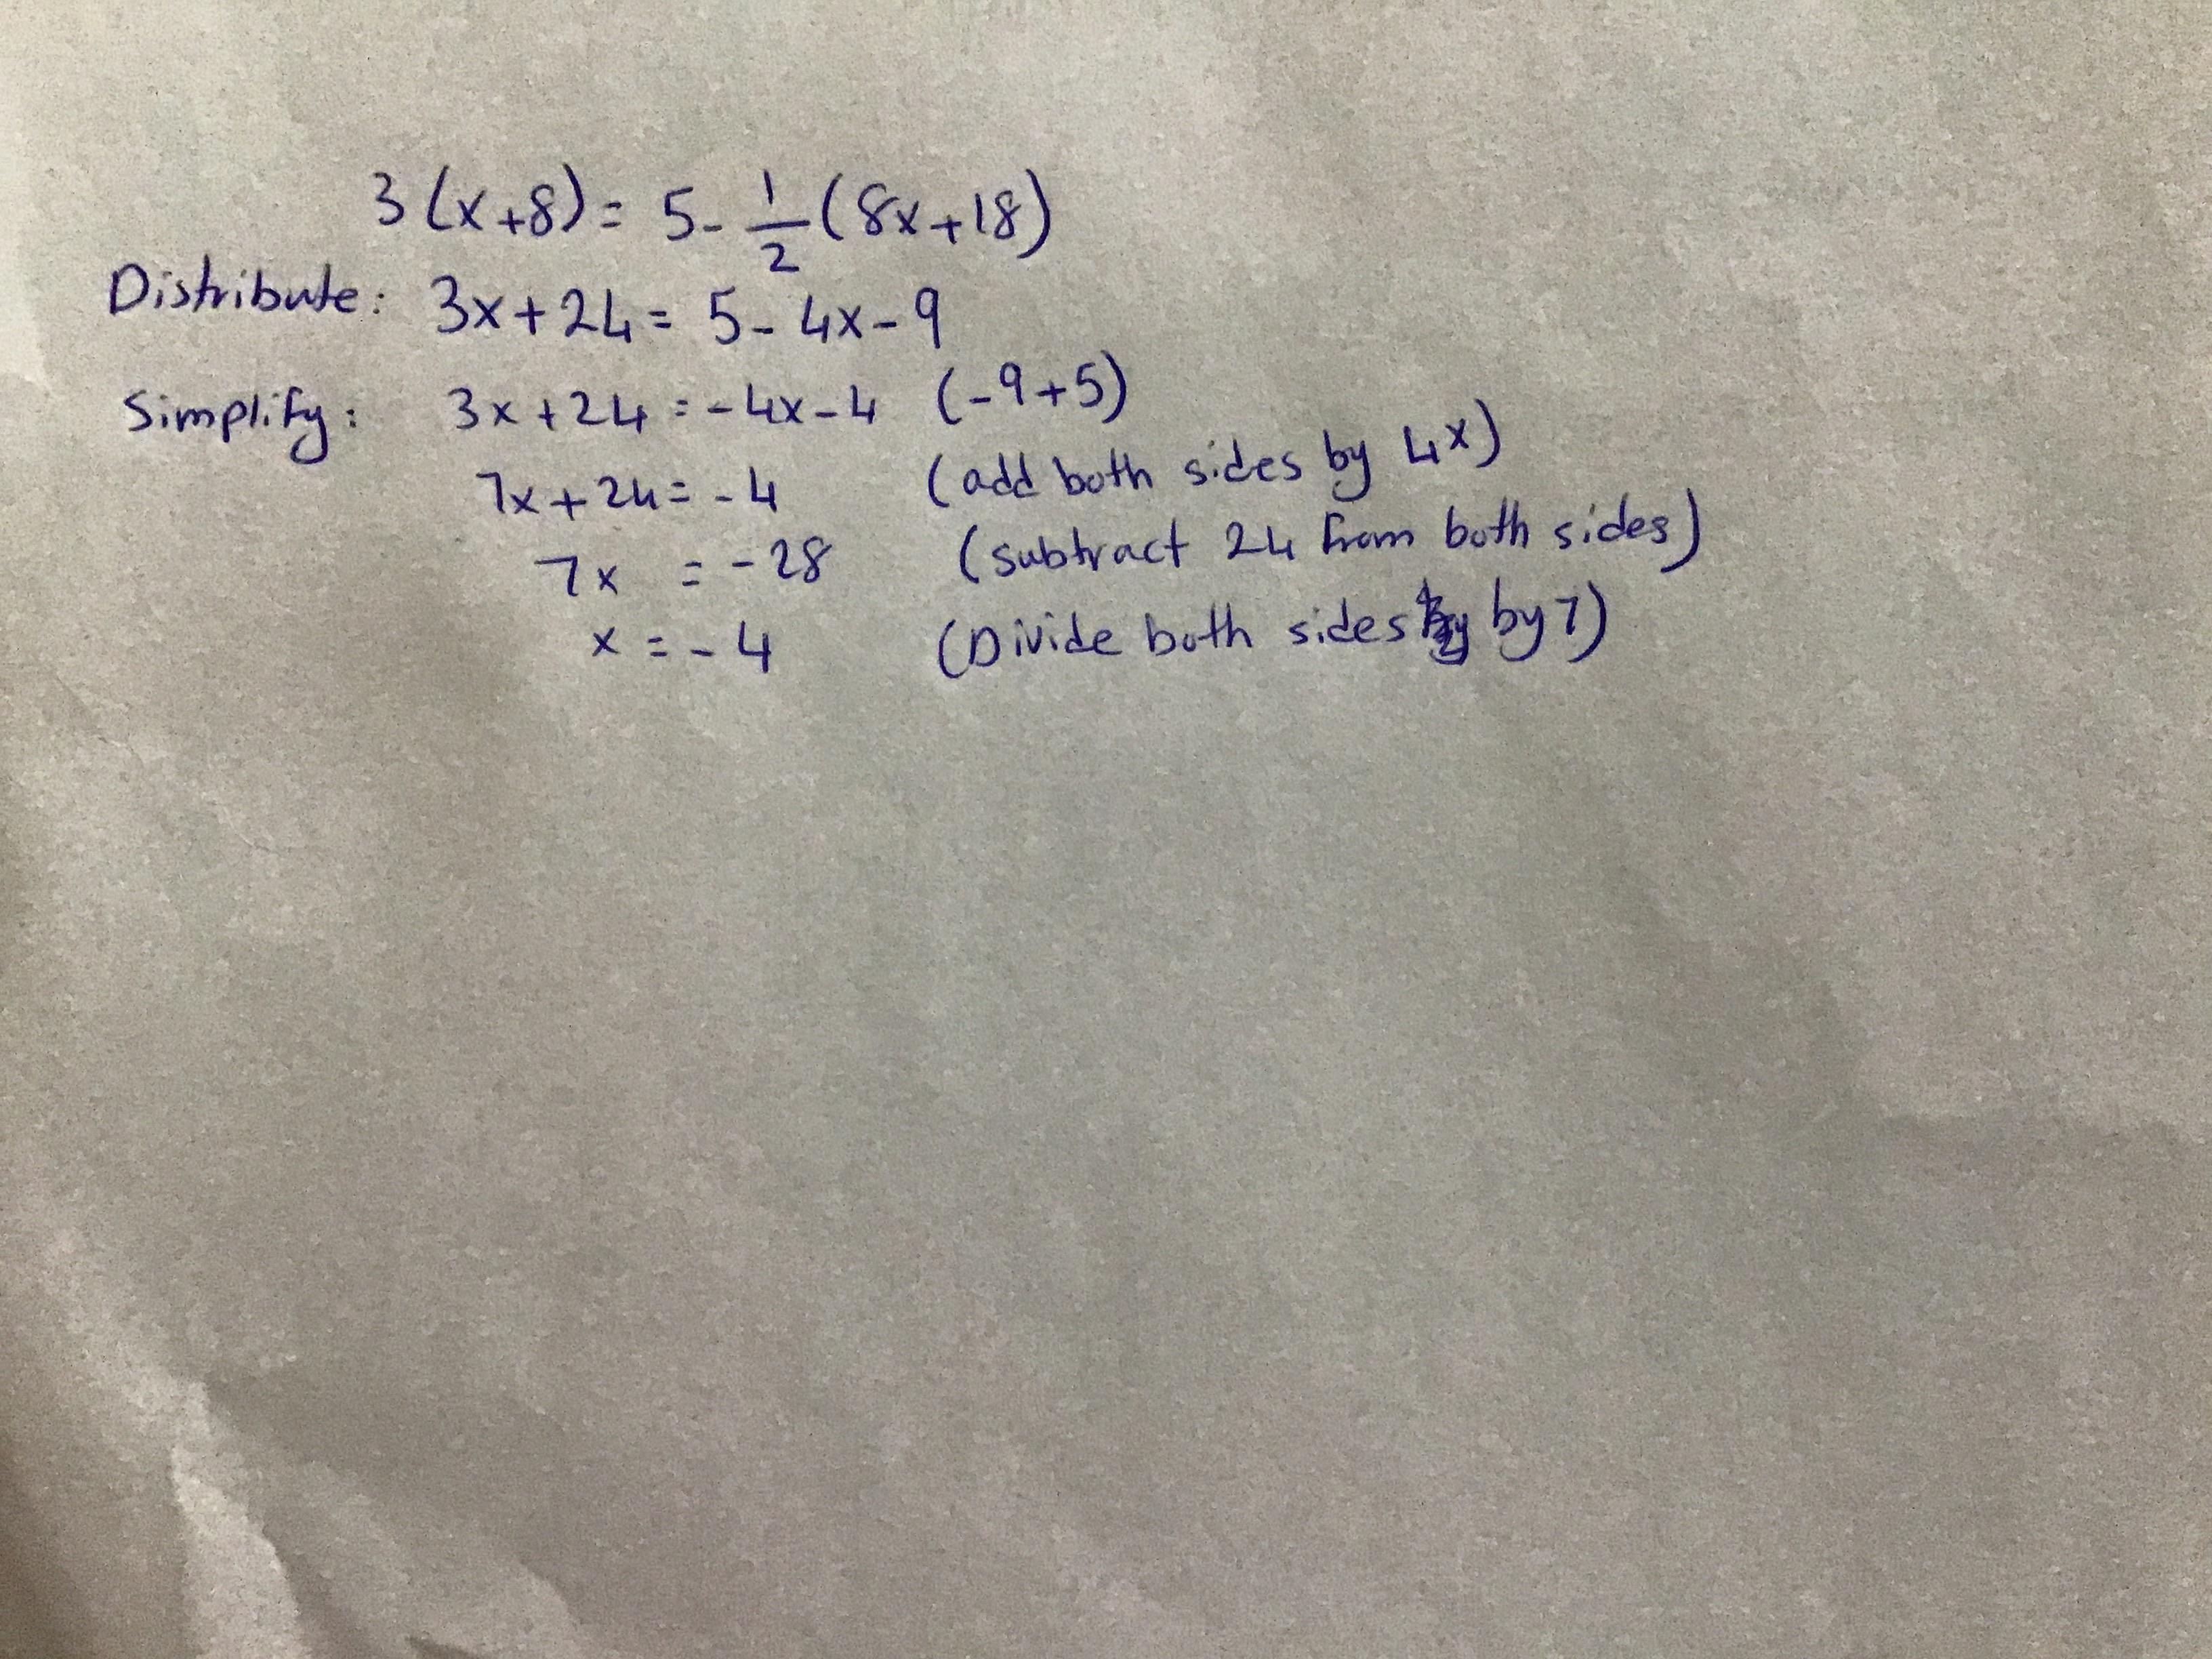 3(x+8) = 5 - 1/2 (8x+18)
Distribute: 3x+24 = 5 - 4x - 9
Simplify: 3x+24 = -4x-4 (-9+5)
7x+24 = -4 (add both sides by 4x)
7x = -28 (subtract 24 from both sides)
x = -4 (Divide both sides by 7)